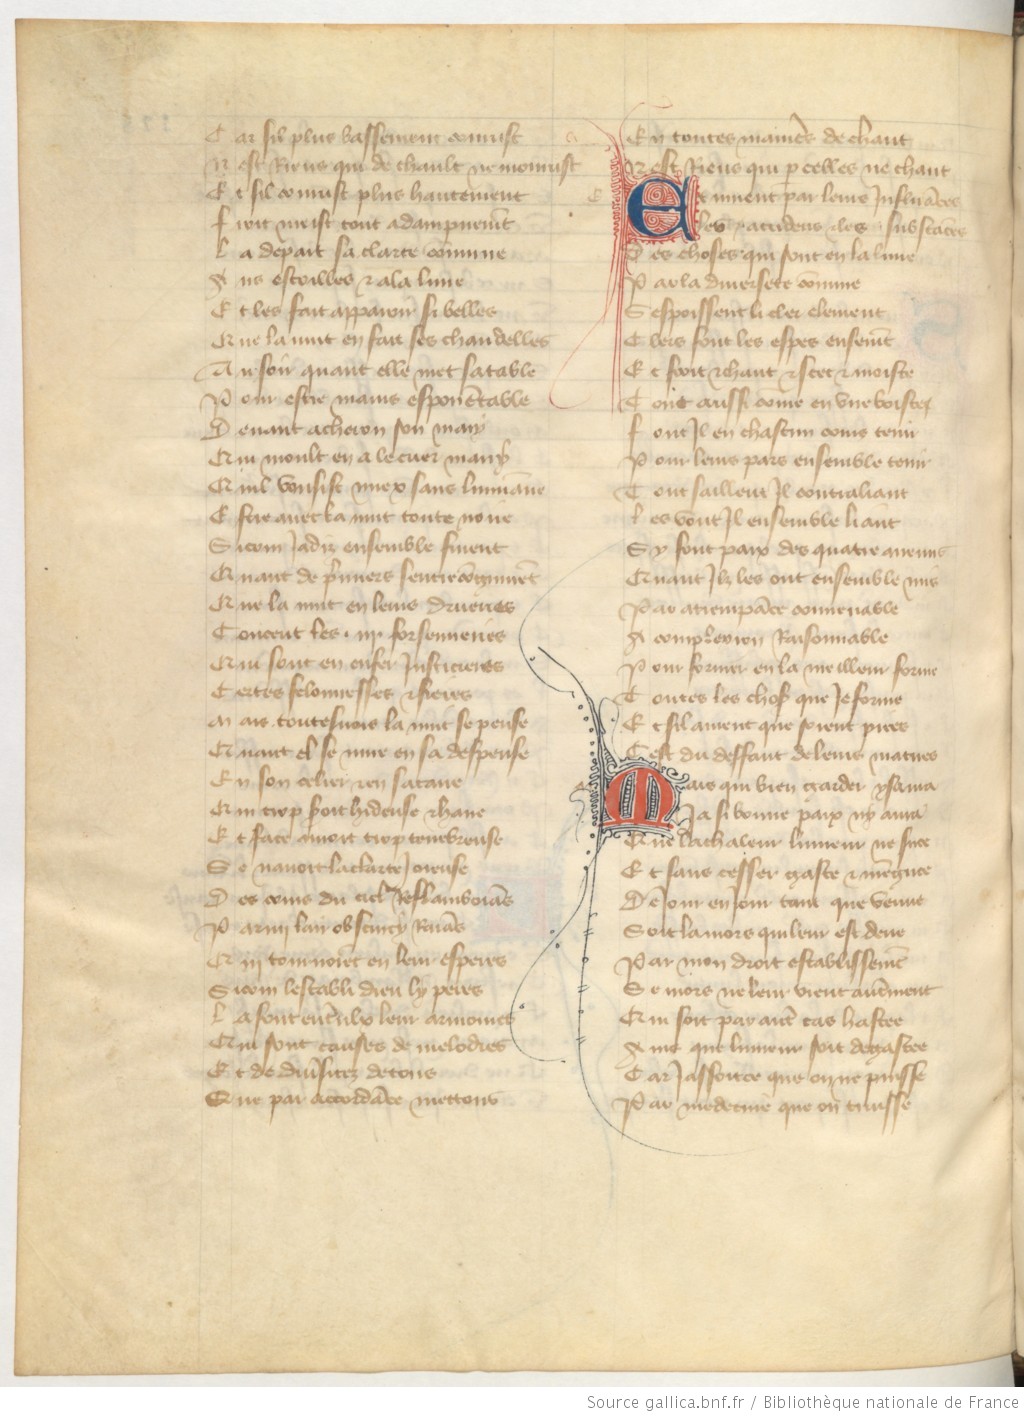 Car sil plus bassement courust
Nest Riens qui de chault ne mourust
Et sil courust plus haultement
Froit meist tout a dampnemt
La depart sa clarte commune
Aus estoilles 7 a la lune
Et les fait apparoir si belles
Que la nuit en fait ses chandelles
Au soir quant elle met sa table
Pour estre mains espouetable
Devant acheron son mary
Qui moult en a le cuer marry
Quil vousist mieux sans luminaire
Estre avec la nuit toute noire
Sicom Jadiz ensemble furent
Quant de p̄miers sentrecōgnurēt
Que la nuit en leurs drueries
Concent les .iij. forseneries
Qui sont en enfer Justicieres
Certes felonnesses 7 fieres
Mais toutesuoies la nuit se pense
Quant el se mire en sa despense
En son celier 7 en sa caue
Qui trop soit hideuse 7 haue
Et face auroit trop tenebreuse
Se nauoit la clarte Joieuse
Des corns du ciel Reflamboiās
Parmi lair obscurcy Raiās
Qui tournoiēt en leur esperes
Sicom lestabli dieu ly peres
La font entreulx leur armonies
Qui sont causes de melodies
Et de diūsitez de tons
Que par accordāce mettons
En toutes manieres de chant
Nest Riens qui p celles ne chant
Et muent par leurs Influāces
les accidens 7 les substāces
Des choses qui sont en la lune
Par la diuersete cōmune
Sespoissent li cler element
Clers font les espes ensemēt
Et froit 7 chaut 7 sec 7 moiste
Tout aussi cōme en vne boiste
Font Jl en chascun corps tenir
Pour leurs pars ensemble tenir
Tout saillent Jl contraliant
Les vont Jl ensemble liant
Sy font paix des quatre anemis
Quant Jlz les ont ensemble mis
Par atrempāce conuenable
A complexion Raisonnable
Pour former en la meilleur forme
Toutes les choses que Je forme
Et sil auient que soient pires
Cest du deffaut de leurs matires
Mais qui bien garder y sara
Ja si bonne paix ny aura
Que la chaleur lumeur ne suce
Et sans cesser gaste 7 mēguce
De Jour en Jour tant que venue
Soit la mors qui leur est deue
Par mon droit establissemēt
Se mors ne leur vient autrement
Qui soit par autre cas hastee
Ains que lumeur soit degastee
Car Jassoit ce que on ne puisse
Par medecine que on truisse